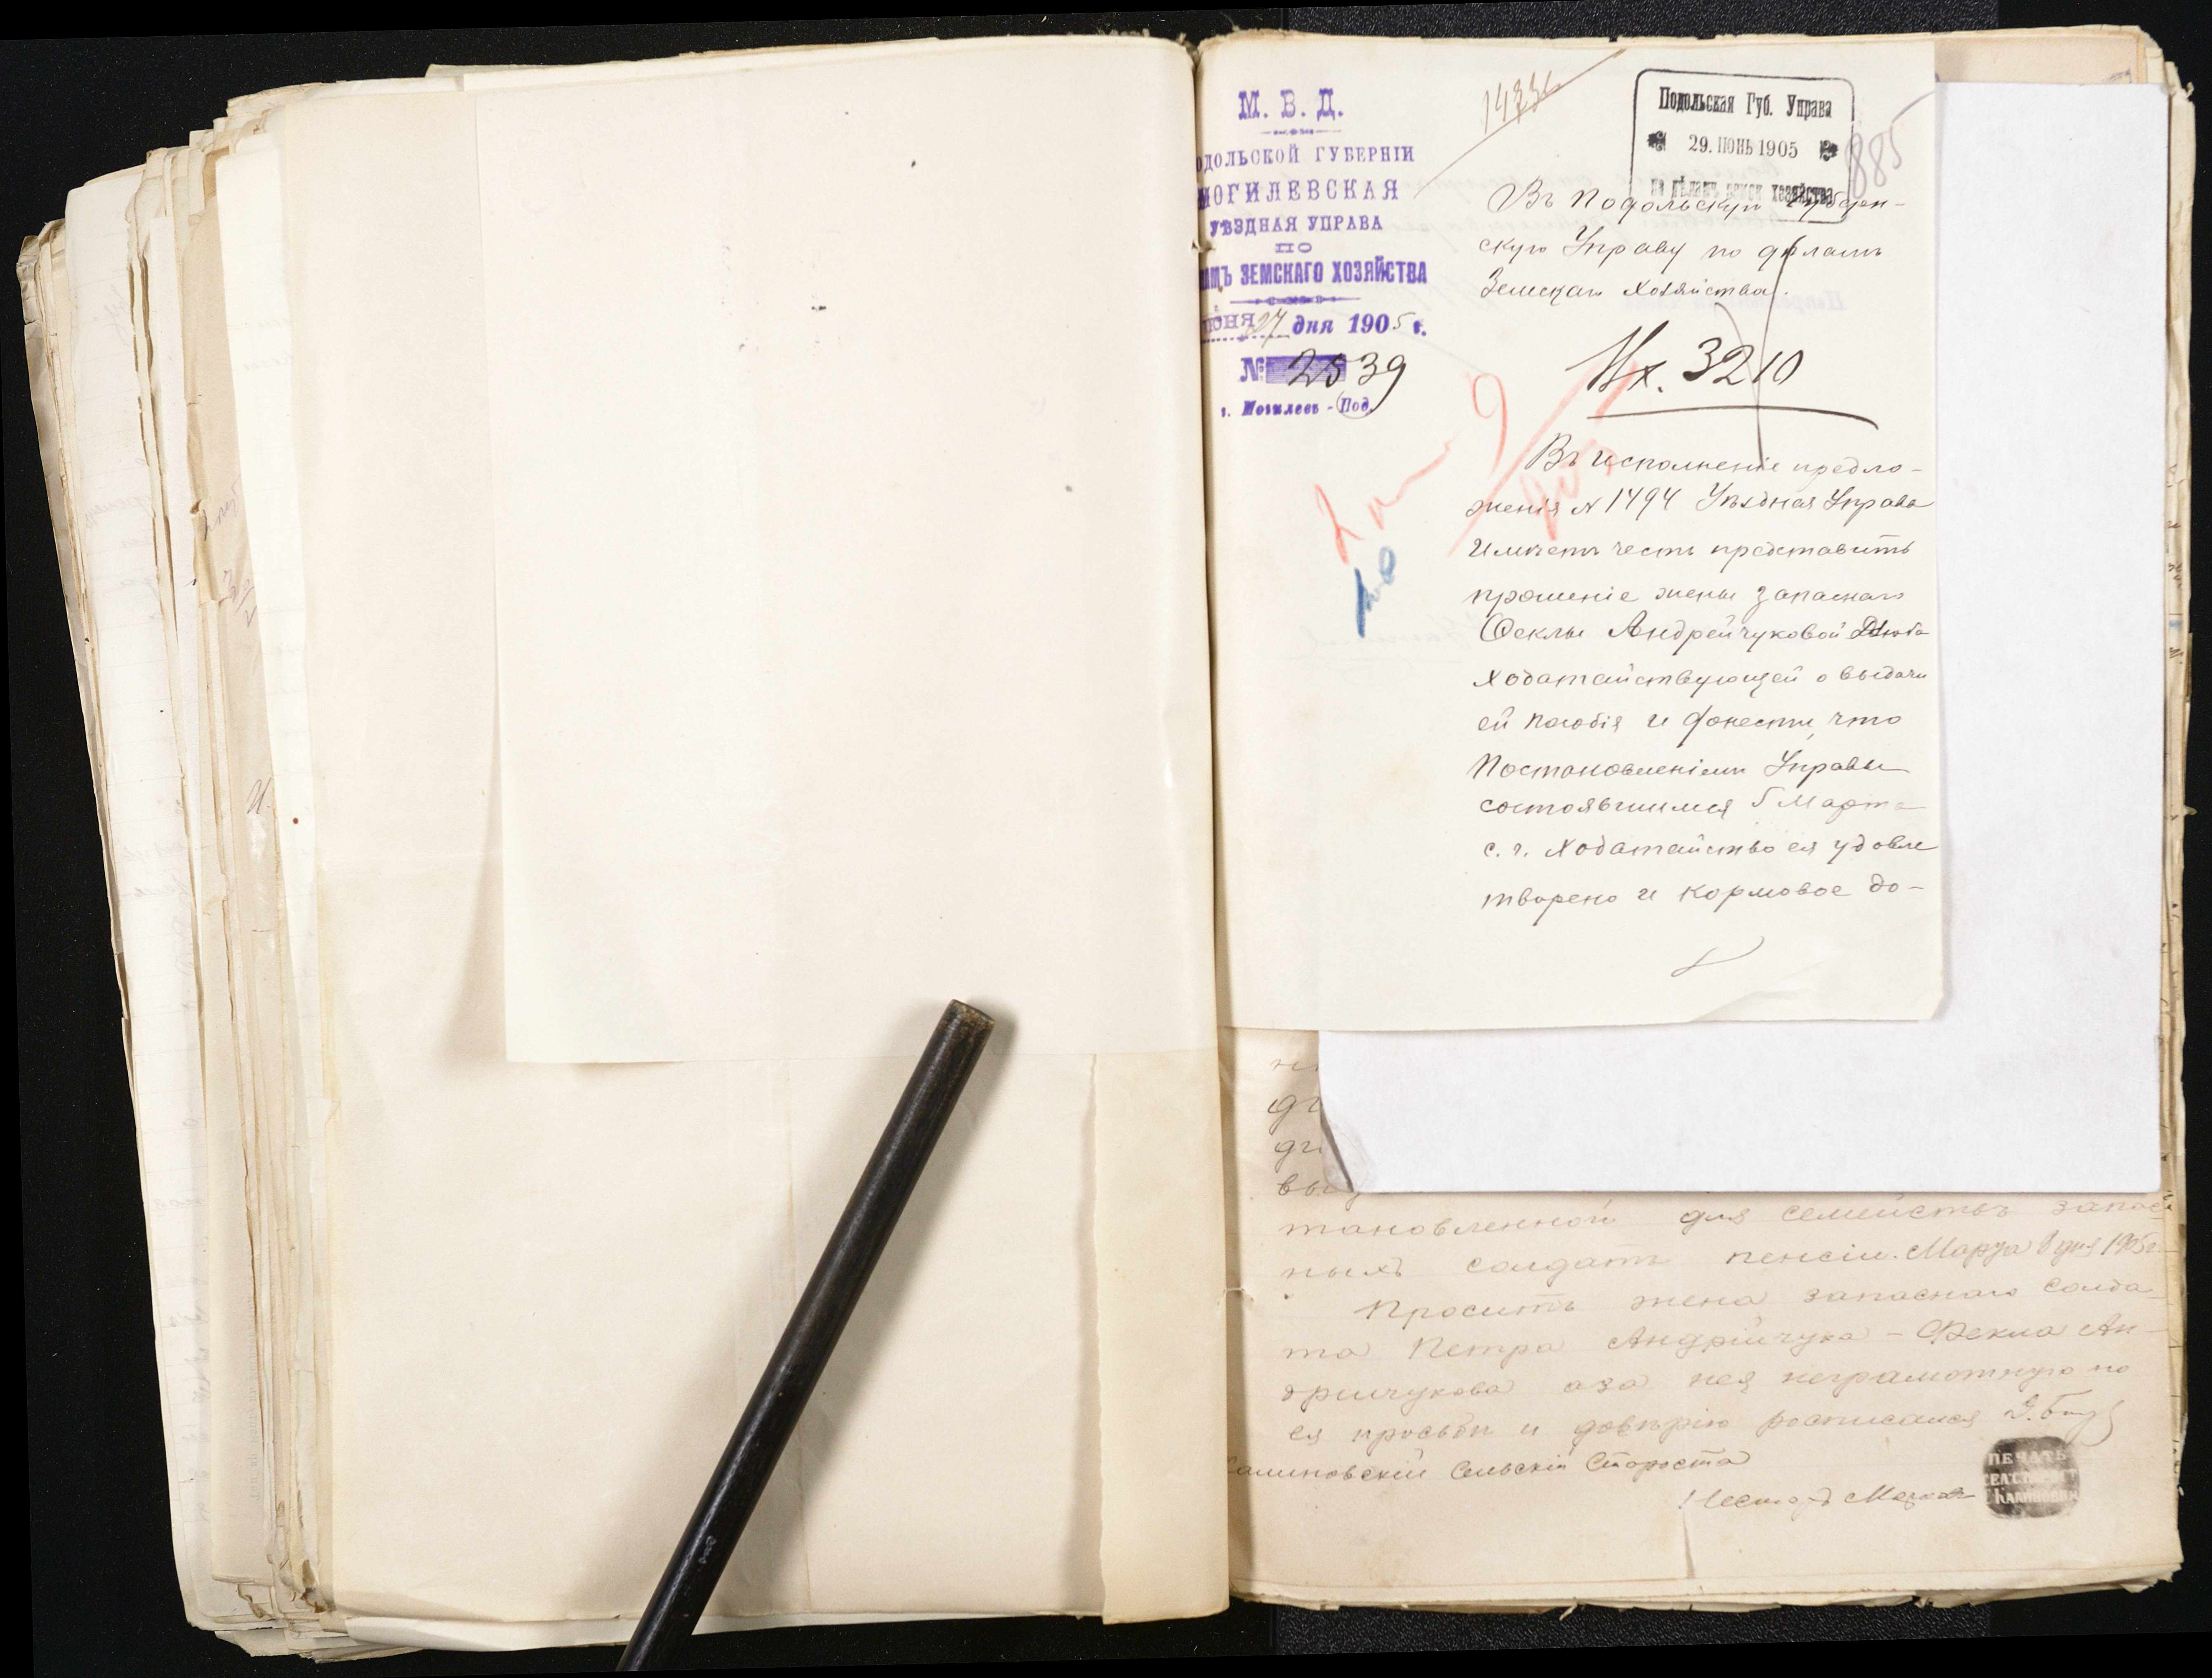 М. В. Д.
ОДОЛЬСКОЙ ГУБЕРНІИ
МОГИЛЕВСКАЯ
УѢЗДНАЯ УПРАВА
ПО
ЛАМЪ ЗЕМСКАГО ХОЗЯЙСТВА
ІЮНЯ 27 дня 1905 г.
№ 2539
г. Могилевъ - Под.
Подольская Губ. Управа
29. ІЮНЬ 1905
по дѣламъ земск хозяйства
885
Въ Подольскую Губерн-
скую Управу по дѣламъ
Земскаго Хозяйства.
Вх. 3210
Въ исполненіе предло-
женія № 1494 Уѣздная Управа
имѣетъ честь представить
прошеніе жены запаснаго
Ѳеклы Андрейчуковой
ходатайствующей о выдачи
ей пособія и донести, что
Постановленіемъ Управы
состоявшимся 5 Марта
с. г. ходатайство ея удовле
творено и кормовое до-
вы
тановленной для семействъ запас-
ныхъ солдатъ пенсіи. Марта 8 дня 1905 г.
Проситъ жена запаснаго солда-
та Петра Андрійчука - Ѳекла Ан-
дричукова аза нея неграмотную по
ея просьбѣ и довѣрію росписался
Калиновскій Сельскій Староста
Нестор
ПЕЧАТЬ